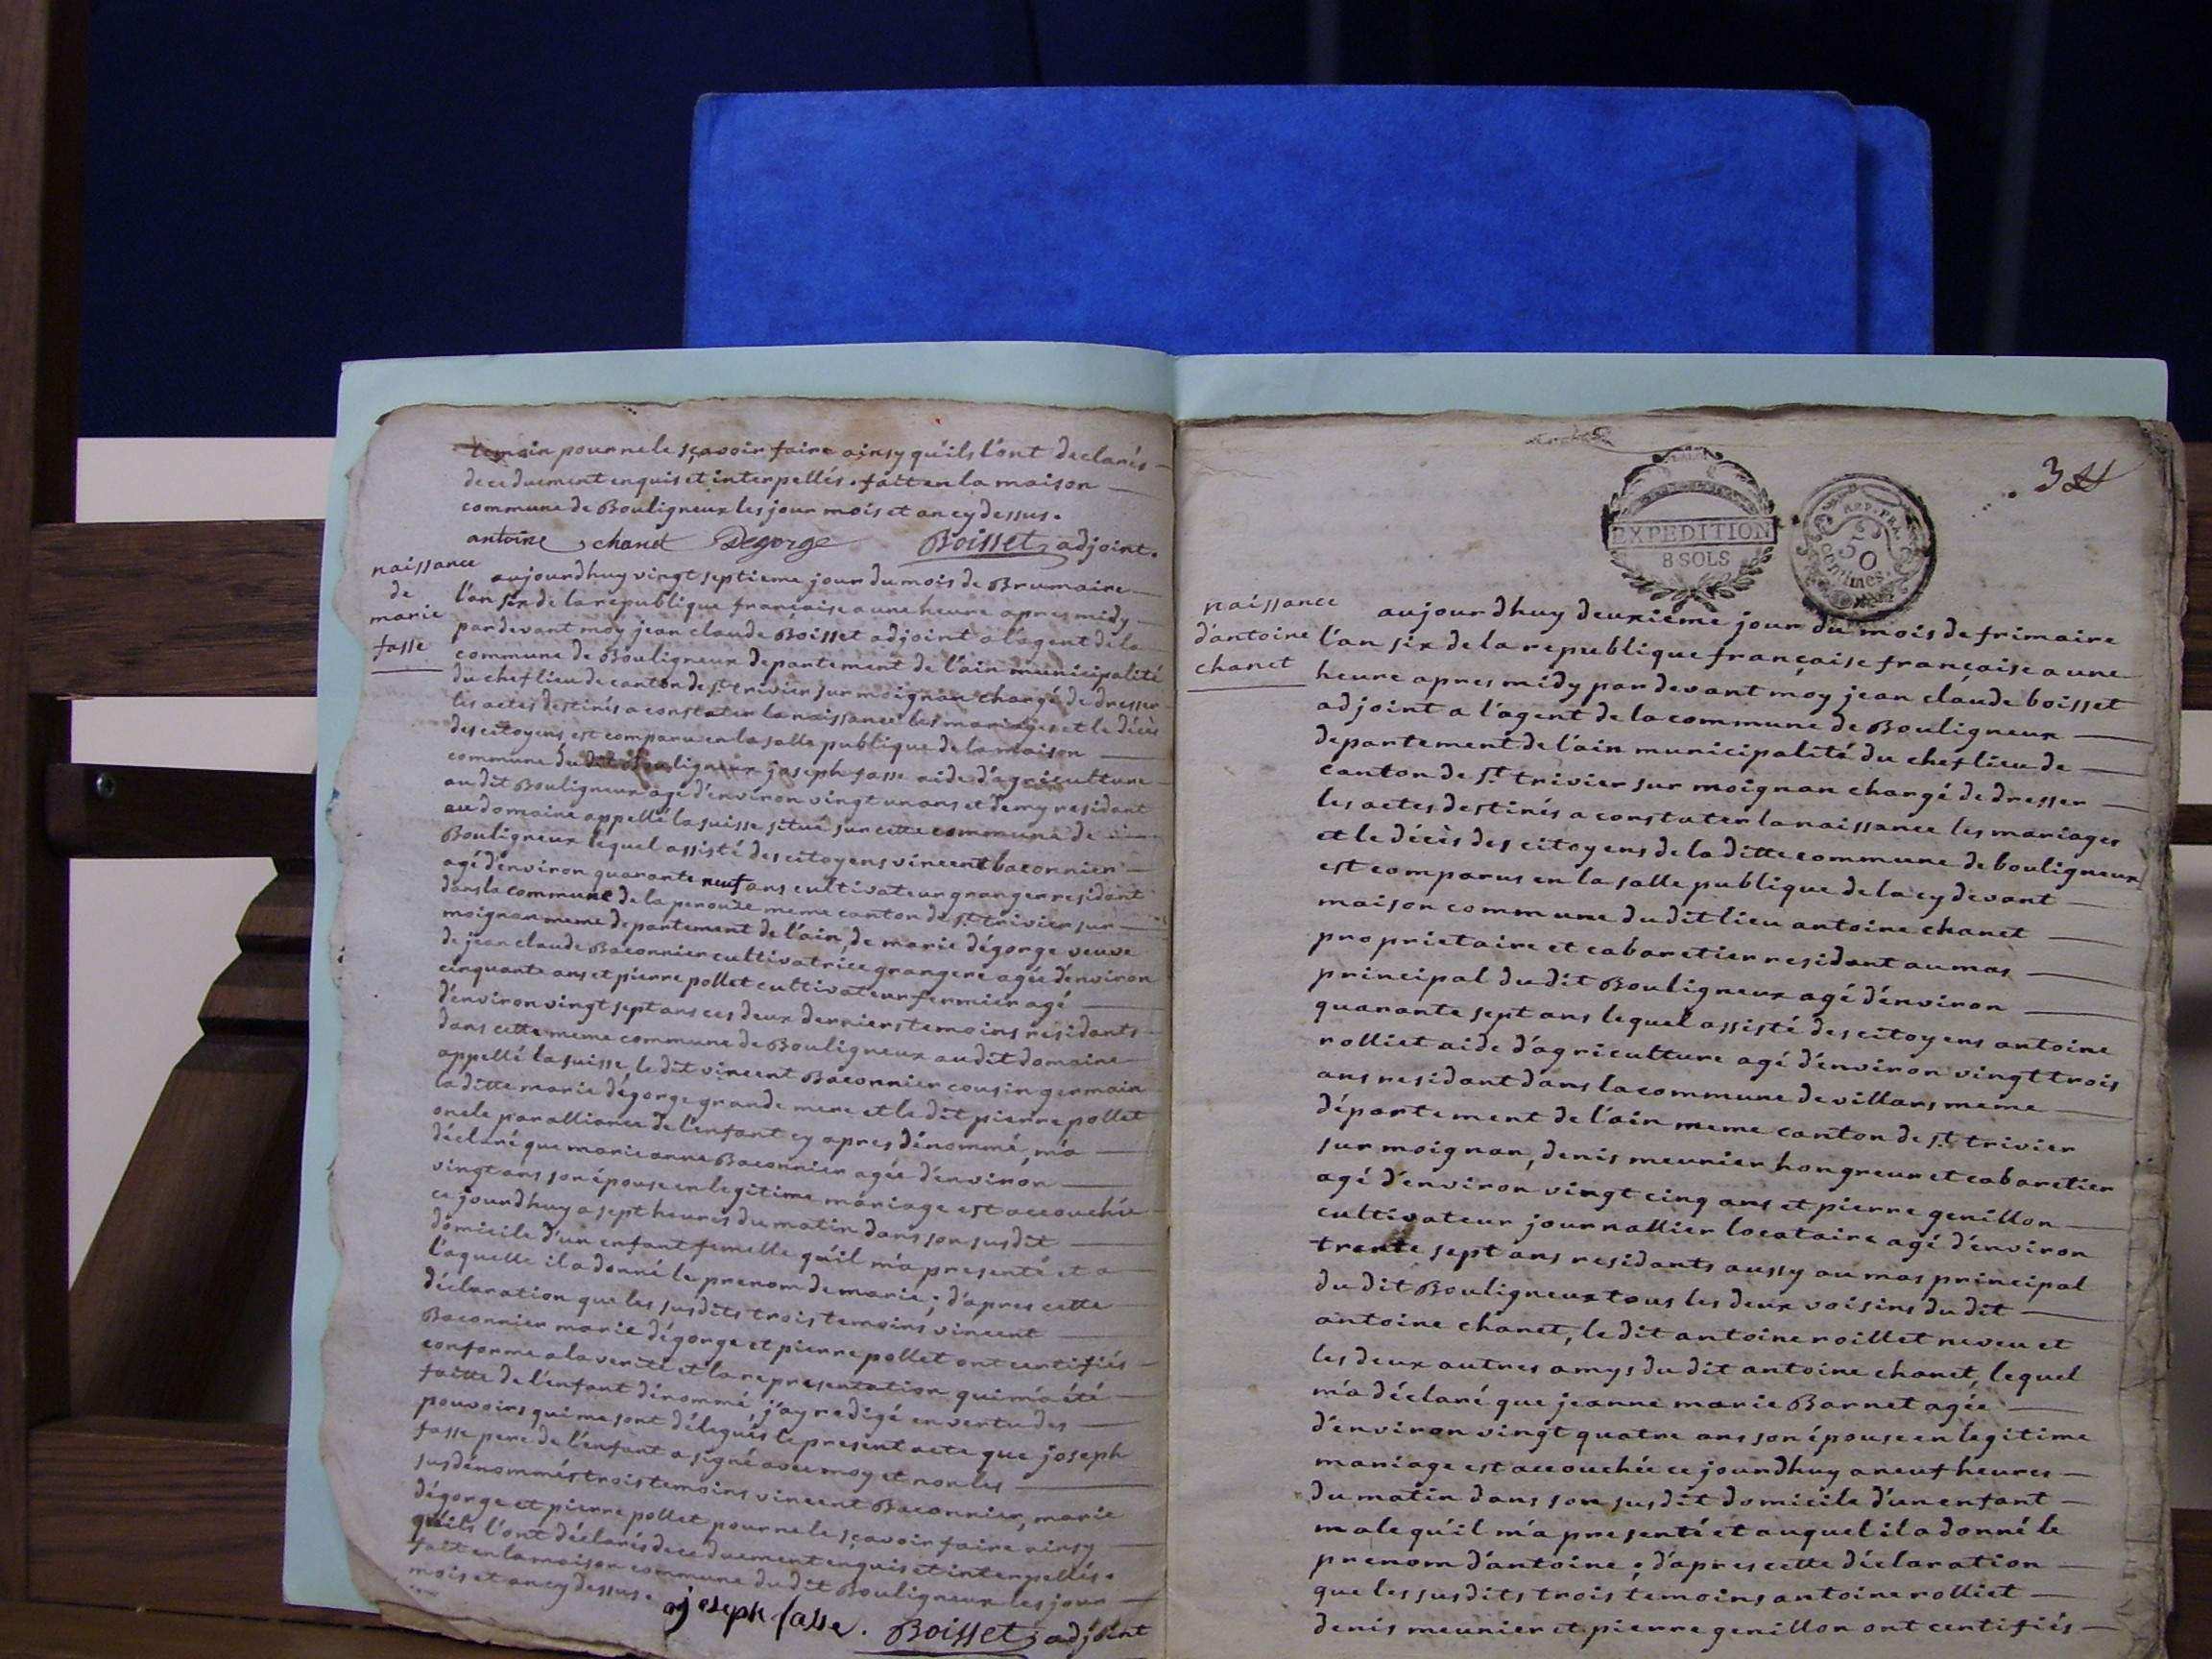 temoin pour ne le sçavoir faire ainsy qu'ils l'ont declarés
de ce duement enquis et interpellés. fait en la maison
commune de Bouligneux les jour mois et an cy dessus.
antoine chanet Degorge Boisset adjoint.
naissance
de
marie
fasse
aujourdhuy vingt septieme jour du mois de Brumaire
l'an six de la republique française a une heure apres midy
par devant moy jean claude Boisset adjoint a l'agent de la
commune de Bouligneux departement de l'ain municipalité
du chef lieu de canton de st. trivier sur moignan chargé de dresser
les actes destinés a constater la naissance les mariages et le décès
des citoyens est comparu en la salle publique de la maison
commune du dit Bouligneux joseph fasse aide d'agriculture
au dit Bouligneux agé d'environ vingt un ans et demy residant
au domaine appellé la suisse situé sur cette commune de
Bouligneux lequel assisté des citoyens vincent baconnier
agé d'environ quarante neuf ans cultivateur granger residant
dans la commune de la perouze meme canton de st. trivier sur
moignan meme departement de l'ain, de marie dégorge veuve
de jean claude Baconnier cultivatrice grangere agée d'environ
cinquante ans et pierre pollet cultivateur fermier agé
d'environ vingt sept ans ces deux derniers temoins residants
dans cette meme commune de Bouligneux au dit domaine
appellé la suisse, le dit vincent Baconnier cousin germain
la ditte marie dégorge grande mere et le dit pierre pollet
oncle par alliance de l'enfant cy apres dénommé, m'a
déclaré que marie anne Baconnier agée d'environ
vingt ans son épouse en legitime mariage est accouchée
ce jourdhuy a sept heures du matin dans son susdit
domicile d'un enfant femelle qu'il m'a presenté et a
l'aquelle il a donné le prenom de marie; d'apres cette
déclaration que les susdits trois temoins vincent
Baconnier marie dégorge et pierre pollet ont certifiés
conforme a la verité et la representation qui m'a été
faitte de l'enfant dénommé j'ay redigé en vertu des
pouvoirs qui me sont délegués le present acte que joseph
fasse pere de l'enfant a signé avec moy et non les
susdénommés trois temoins vincent Baconnier, marie
dégorge et pierre pollet pour ne le sçavoir faire ainsy
qu'ils l'ont déclarés de ce duement enquis et interpellés.
fait en la maison commune du dit Bouligneux les jour
mois et an cy dessus.
joseph fasse. Boisset adjoint
3
EXPEDITION
8 SOLS
REP. FRA.
50
centimes.
naissance
d'antoine
chanet
aujourdhuy deuxieme jour du mois de frimaire
l'an six de la republique française française a une
heure apres midy par devant moy jean claude boisset
adjoint a l'agent de la commune de Bouligneux
departement de l'ain municipalité du chef lieu de
canton de st. trivier sur moignan chargé de dresser
les actes destinés a constater la naissance les mariages
et le décès des citoyens de la ditte commune de bouligneux
est comparus en la salle publique de la cy devant
maison commune du dit lieu antoine chanet
proprietaire et cabaretier residant au mas
principal du dit Bouligneux agé d'environ
quarante sept ans lequel assisté des citoyens antoine
rolliet aide d'agriculture agé d'environ vingt trois
ans residant dans la commune de villars meme
département de l'ain meme canton de st. trivier
sur moignan, denis meunier hongreur et cabaretier
agé d'environ vingt cinq ans et pierre genillon
cultivateur journallier locataire agé d'environ
trente sept ans residants aussy au mas principal
du dit Bouligneux tous les deux voisins du dit
antoine chanet, le dit antoine roillet neveu et
les deux autres amys du dit antoine chanet, lequel
m'a déclaré que jeanne marie Barnet agée
d'environ vingt quatre ans son épouse en legitime
mariage est accouchée ce jourdhuy a neuf heures
du matin dans son susdit domicile d'un enfant
male qu'il m'a presenté et auquel il a donné le
prenom d'antoine; d'apres cette déclaration
que les susdits trois temoins antoine rolliet
denis meunier et pierre genillon ont certifiés